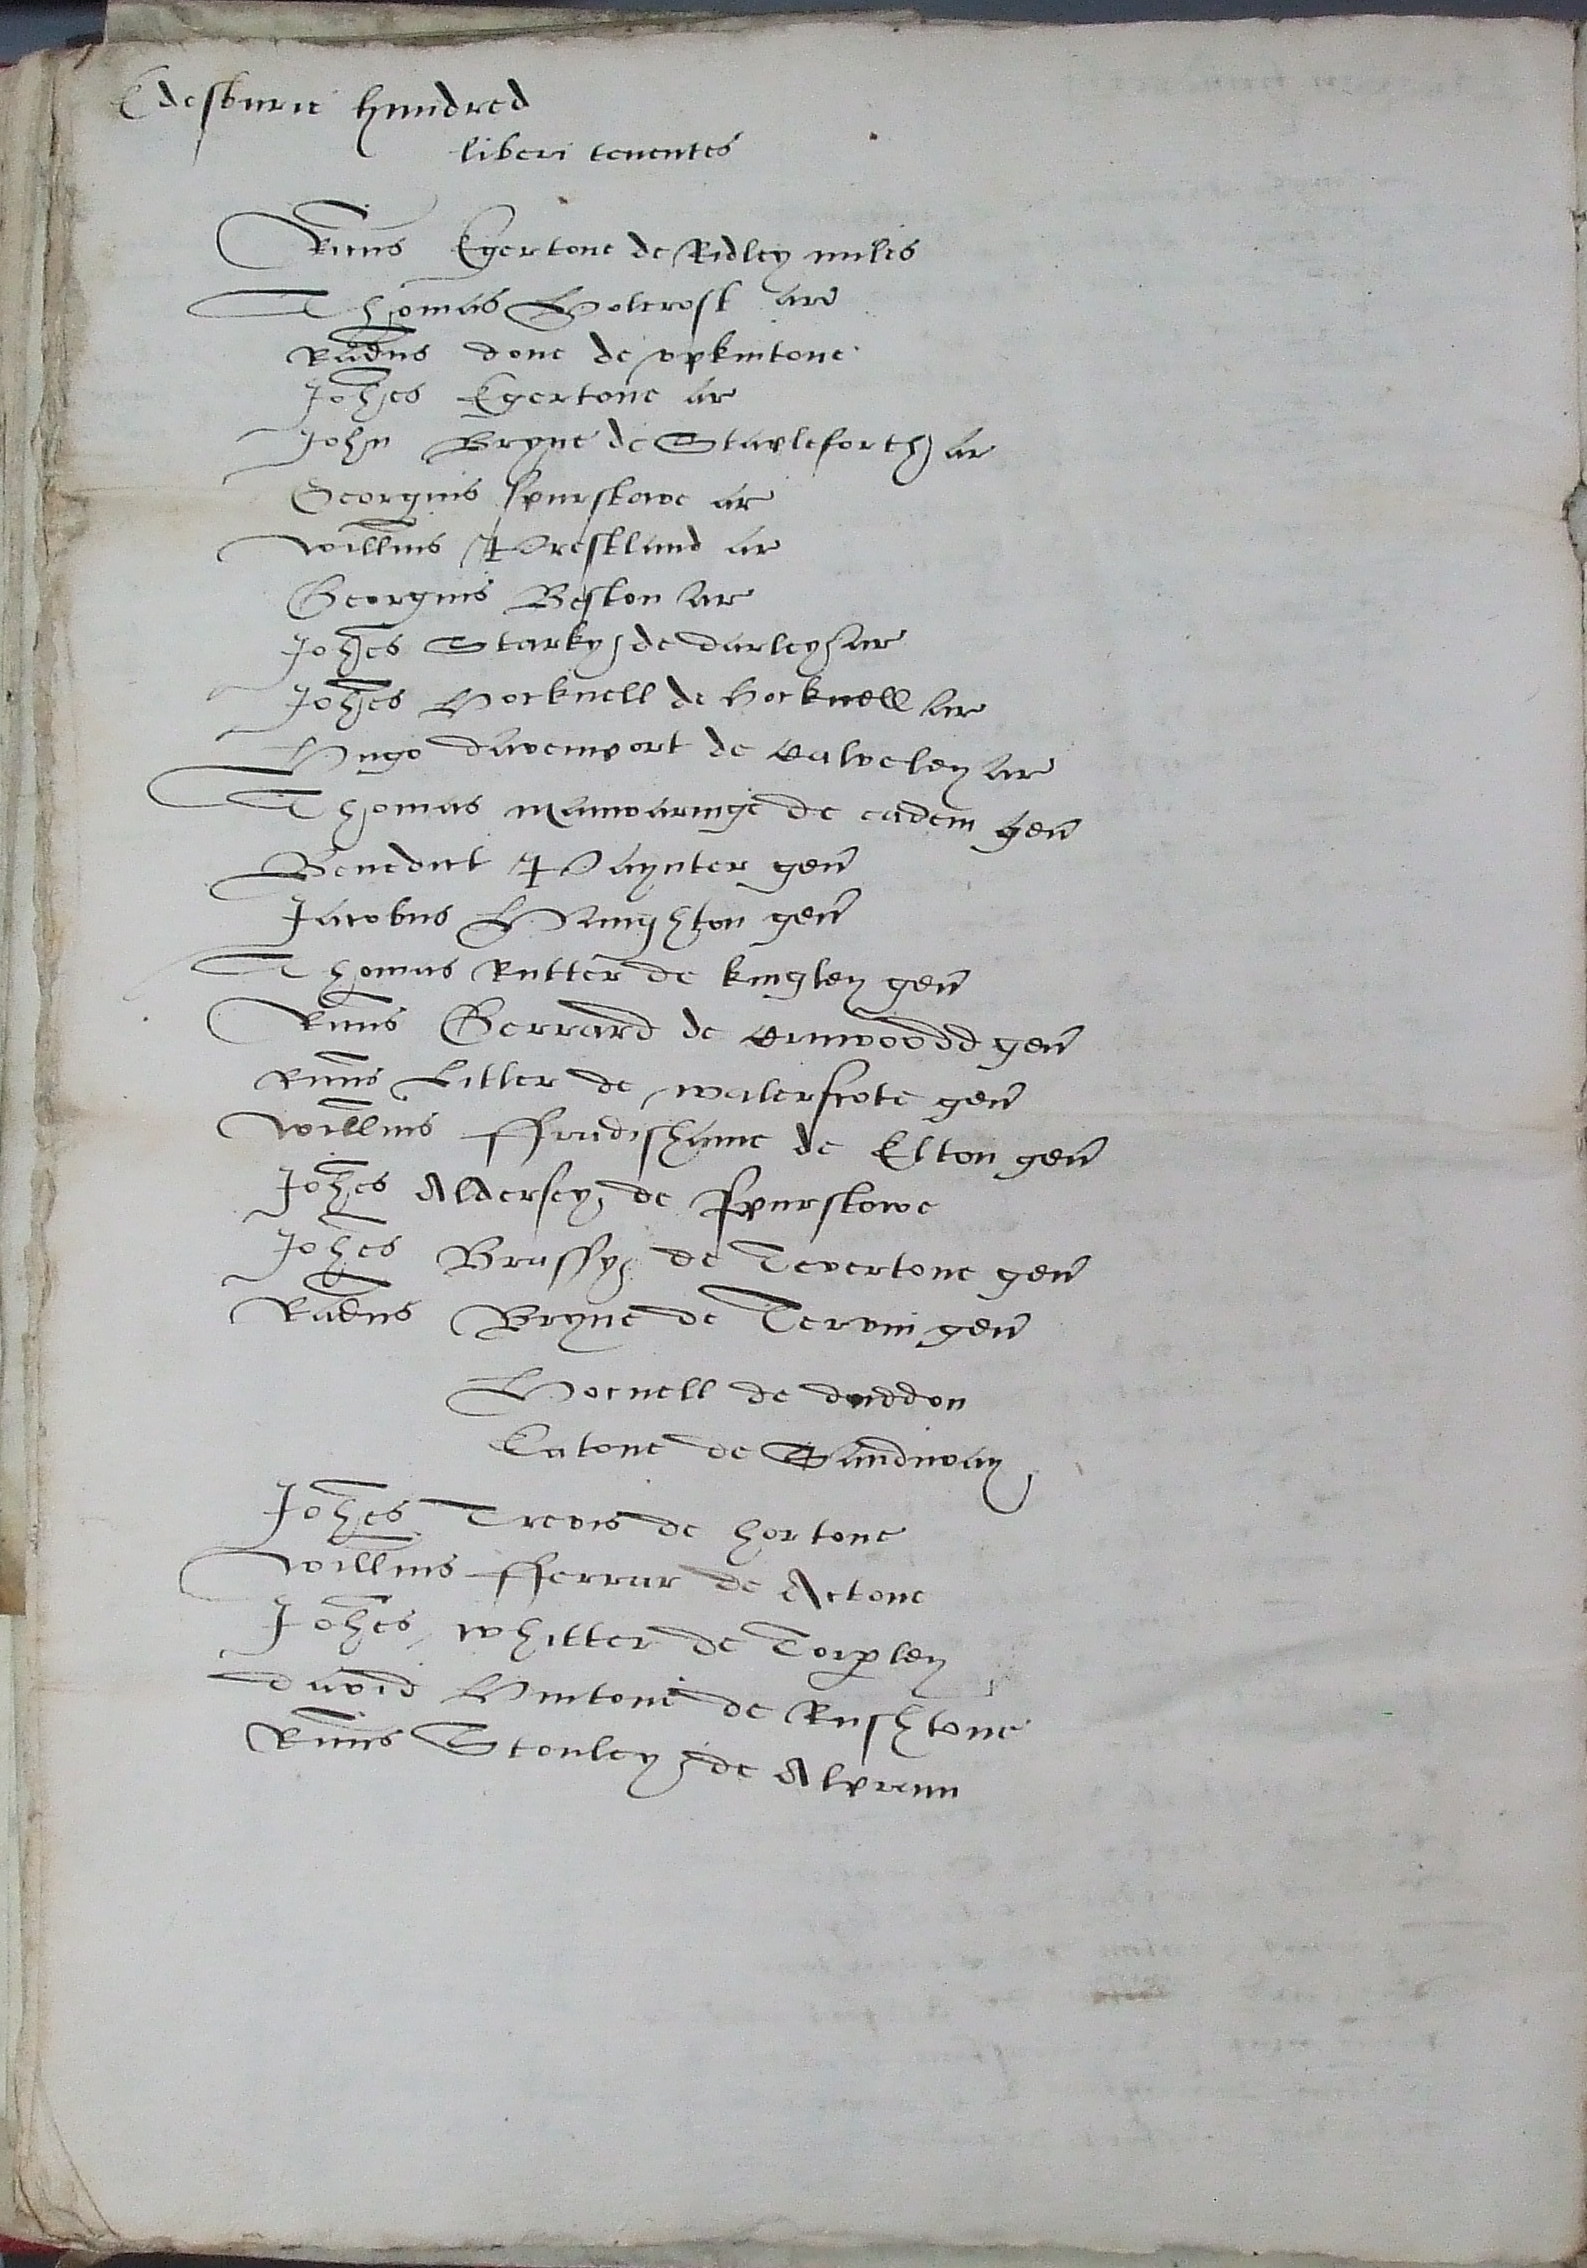 Edesburie hundred
liberi tenentes
Ricus Egertone de Ridley miles
Thomas Holcroft ar
Radus done de vpkintone
Johes Egertone ar
John Bryne de Stapleforth ar
Georgius spurstowe ar
Willms Prestland ar
Georgius Beston ar
Johes Starky de darley ar
Johes Hocknell de Hocknell ar
Hugo davenport de Calveley ar
Thomas manwaringe de eadem gen
Benedict Paynter gen
Jacobus gen
Thomas Rutter de kingley gen
Ricus Gerrard de Cruwoodd gen
Ricus Litler de walerscote gen
Willms ffrudishame de Elton gen
Johes Aldersey de Spurstowe
Johes Brassy de Tevertone gen
Radus Bryne de Tervin gen
Hocnell de duddon
Eatone de Sandiway
Johes Trevis de hortone
Willms fferrar de Actone
Johes whitter de Torpley
david Huitone de Rushtone
Ricus Stonley de Alpram